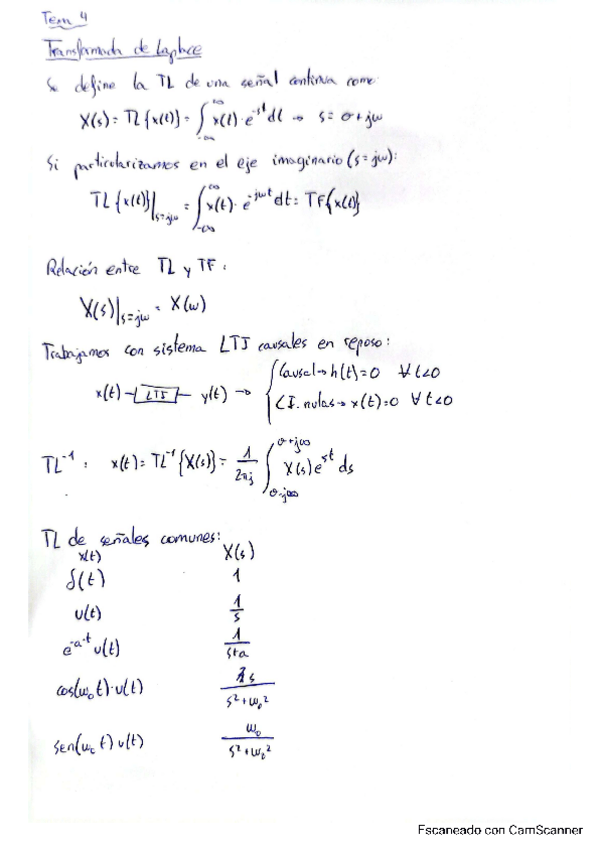 Tema 4
Transformada de Laplace
Se define la TL de una señal continua como:
X(s) = TL{x(t)} = ∫_{-∞}^{∞} x(t)·e^{-st} dt → s = σ + jω
Si particularizamos en el eje imaginario (s = jω):
TL{x(t)}|_{s=jω} = ∫_{-∞}^{∞} x(t)·e^{-jωt} dt = TF{x(t)}
Relación entre TL y TF:
X(s)|_{s=jω} = X(ω)
Trabajamos con sistema LTI causales en reposo:
x(t) – LTI – y(t) → { Causal → h(t) = 0 ∀ t<0
C.I. nulas → x(t) = 0 ∀ t<0
TL^{-1}: x(t) = TL^{-1}{X(s)} = 1/(2πj) ∫_{σ-j∞}^{σ+j∞} X(s) e^{st} ds
TL de señales comunes:
x(t) X(s)
δ(t) 1
u(t) 1/s
e^{-a·t} u(t) 1/(s+a)
cos(ω₀t)·u(t) s/(s²+ω₀²)
sen(ω₀t) u(t) ω₀/(s²+ω₀²)
Escaneado con CamScanner